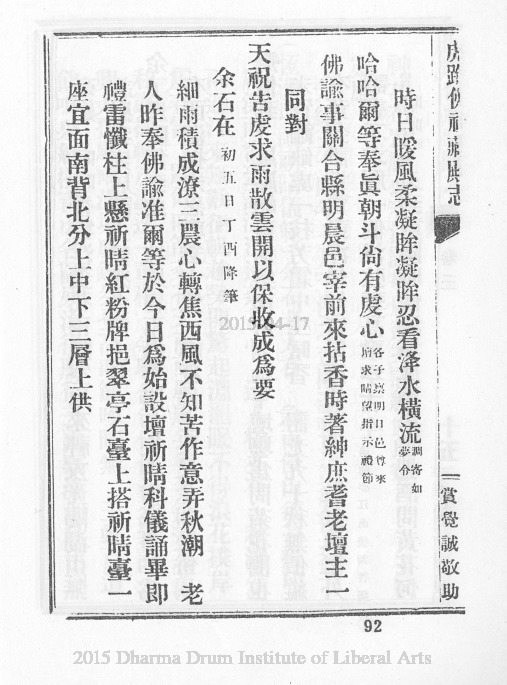 虎跑佛祖藏殿志
時日暖風柔凝眸凝眸忍看洚水橫流調寄如夢令
哈哈爾等奉眞朝斗尙有虔心各子稟明日邑尊來廟求晴望指示禮節
佛諭事關合縣明晨邑宰前來拈香時著紳庶耆老壇主一
同對
天祝告虔求雨散雲開以保收成爲要
余石在 初五日丁酉降筆
細雨積成潦三農心轉焦西風不知苦作意弄秋潮 老
人昨奉佛諭准爾等於今日爲始設壇祈晴科儀誦畢即
禮雷懺柱上懸祈晴紅粉牌挹翠亭石臺上搭祈晴臺一
座宜面南背北分上中下三層上供
賞覺誠敬助
92
2015-04-17
2015 Dharma Drum Institute of Liberal Arts